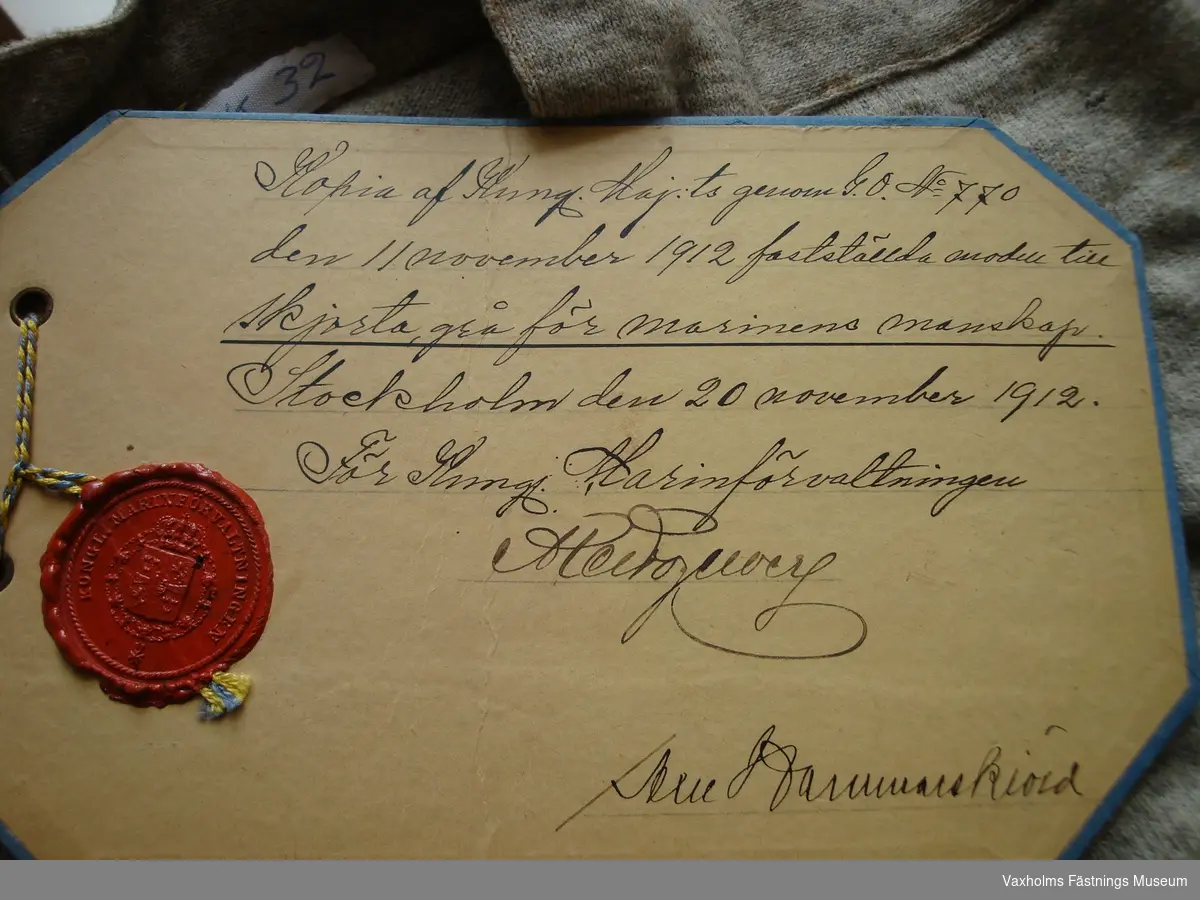 32
Kopia af Kung. Maj:ts genom G.O. No 770
den 11 november 1912 fastställda modell till
skjorta, grå för marinens manskap.
Stockholm den 20 november 1912.
För Kungl. Marinförvaltningen
KONGL. MARINFÖRVALTNINGEN
Hammarskiöld
Vaxholms Fästnings Museum